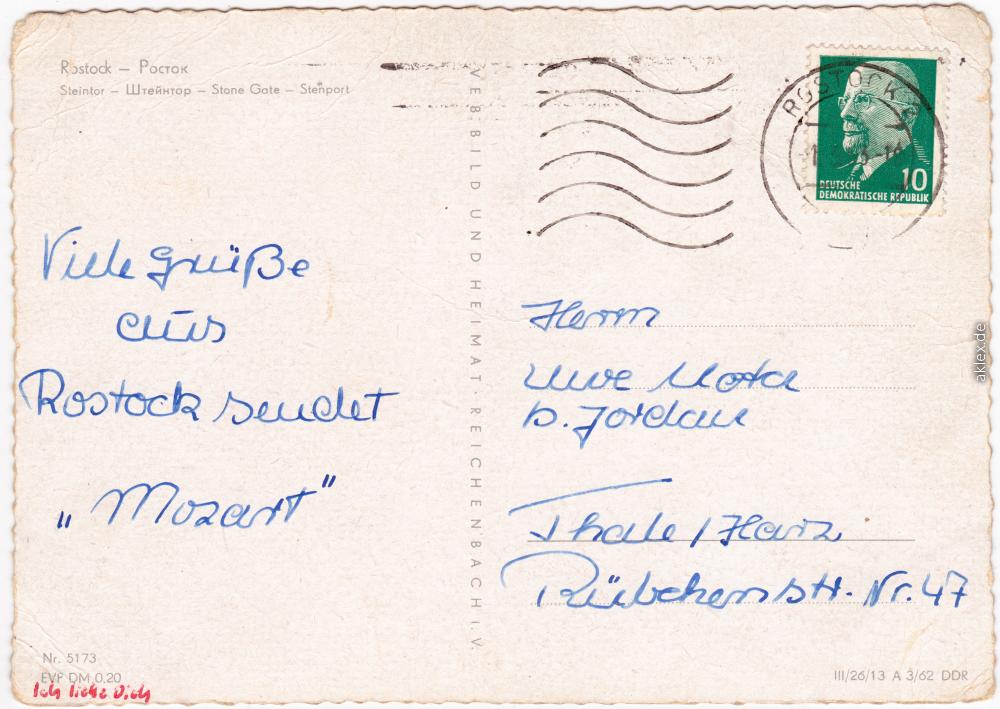 Rostock — Росток
Steintor — Штейнтор — Stone Gate — Stenport
VEB BILD UND HEIMAT REICHENBACH I. V.
ROSTOCK
10
DEUTSCHE
DEMOKRATISCHE REPUBLIK
Viele Grüße
aus
Rostock sendet
„Mozart"
Herrn
Uwe
b. Jordan
Thale/Harz
Rübchenstr. Nr. 47
Nr. 5173
EVP DM 0,20
Ich liebe Dich
III/26/13 A 3/62 DDR
aklex.de